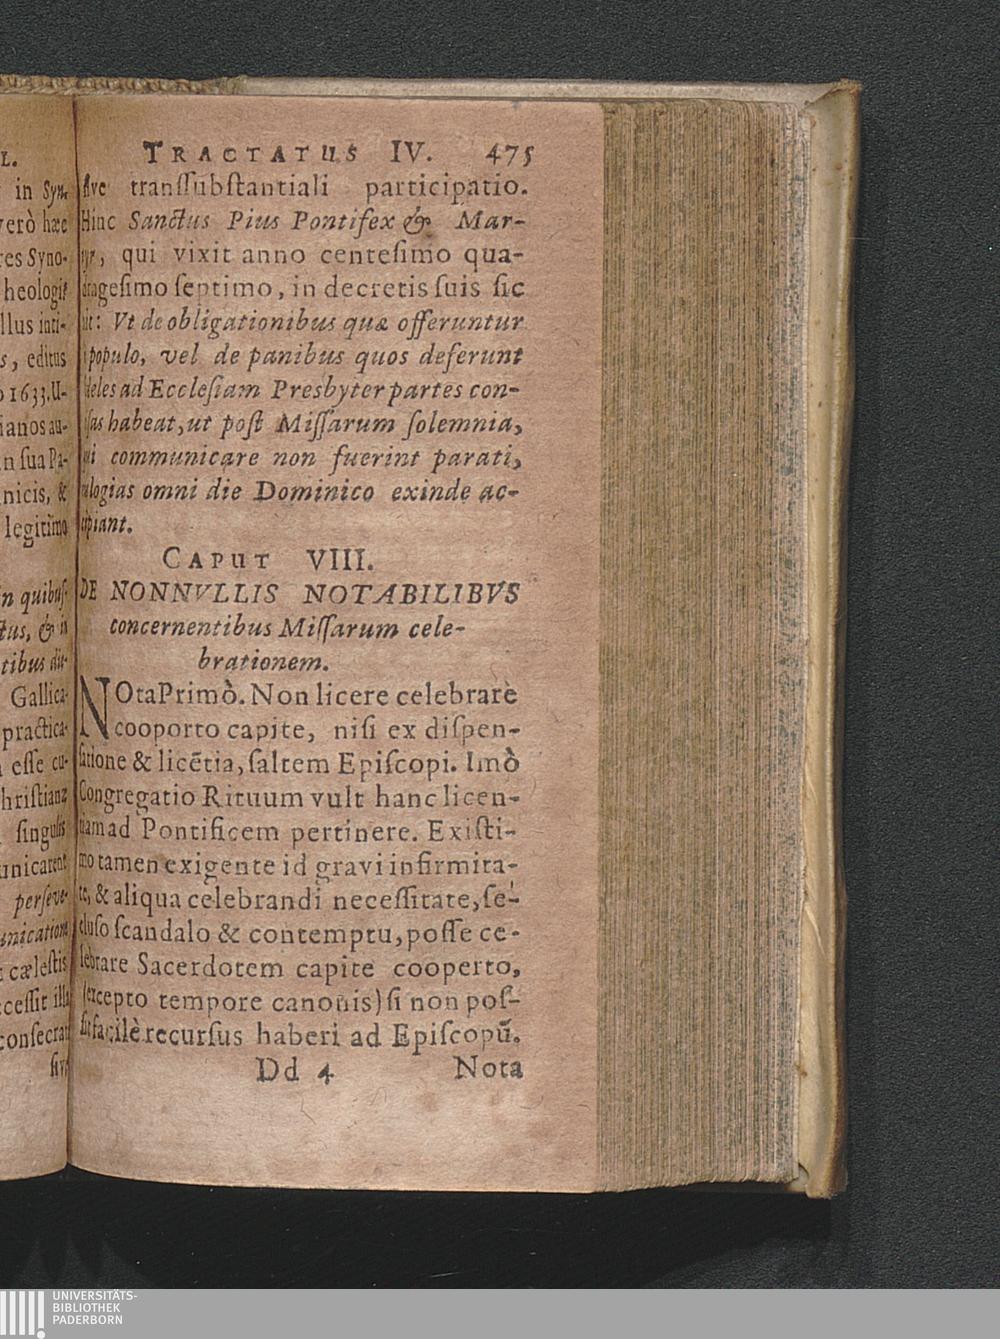 TRACTATUS IV. 475
transsubstantiali participatio.
Hinc Sanctus Pius Pontifex & Mar-
qui vixit anno centesimo qua-
septimo, in decretis suis sic
Vt de obligationibus quæ offeruntur
populo, vel de panibus quos deferunt
ad Ecclesiam Presbyter partes con-
habeat, ut post Missarum solemnia,
communicare non fuerint parati,
omni die Dominico exinde ac-
CAPUT VIII.
DE NONNVLLIS NOTABILIBVS
concernentibus Missarum cele-
brationem.
NOta Primò. Non licere celebrare
cooporto capite, nisi ex dispen-
satione & licẽtia, saltem Episcopi. Imò
Congregatio Rituum vult hanc licen-
tiam ad Pontificem pertinere. Existi-
mo tamen exigente id gravi infirmita-
te, & aliqua celebrandi necessitate, se-
cluso scandalo & contemptu, posse ce-
lebrare Sacerdotem capite cooperto,
(excepto tempore canonis) si non pos-
sit facilè recursus haberi ad Episcopũ.
Dd 4 Nota
L.
in Syn-
verò hæc
res Syno-
heologis
llus inti-
s, editus
1633. U-
ianos au-
in sua Pa-
nicis, &
legitimo
in quibus-
tus, & in
tibus dis-
Gallica-
practica-
esse cu-
hristianæ
singulis
unicarent
perseve-
unicatione
cælestis
cessit illa
consecrat
UNIVERSITÄTS-
BIBLIOTHEK
PADERBORN